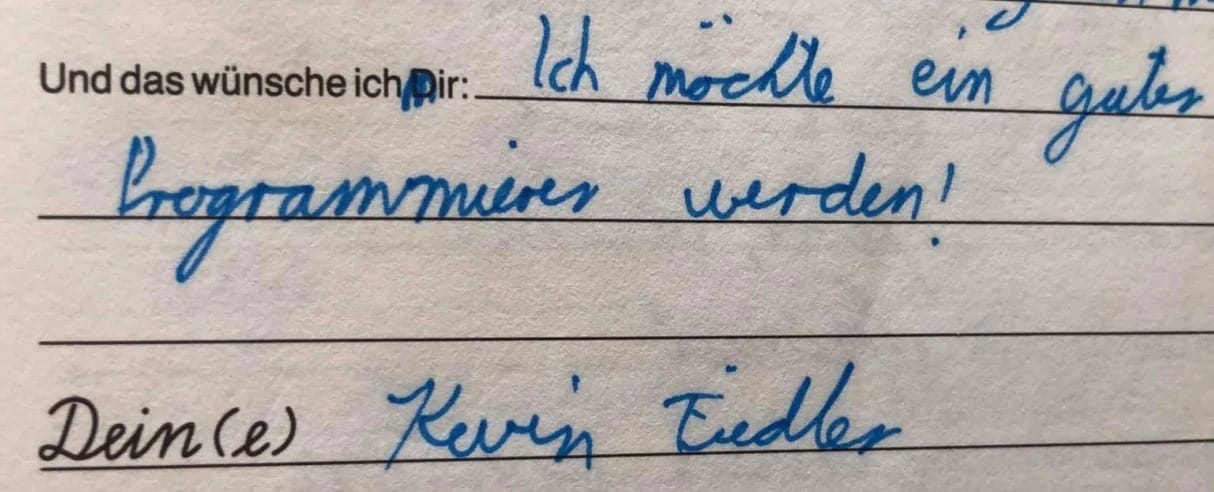 Und das wünsche ich Mir: Ich möchte ein guter
Programmierer werden!
Dein(e) Kevin Fiedler